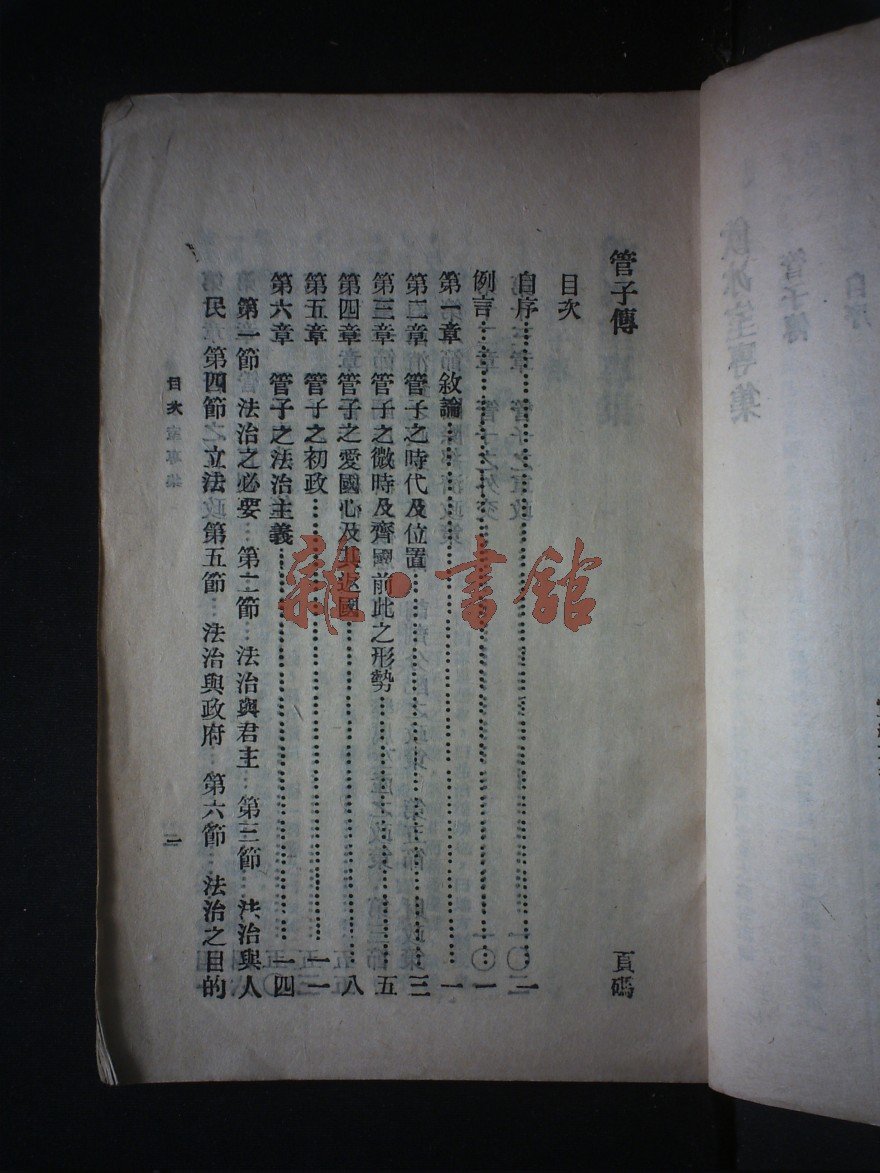 管子傳 頁碼
目次
自序……………………一
例言……………………一
第一章 敘論……………………一
第二章 管子之時代及位置……………………三
第三章 管子之微時及齊國前此之形勢……………………五
第四章 管子之愛國心及其返國……………………八
第五章 管子之初政……………………一一
第六章 管子之法治主義……………………一四
第一節 法治之必要 第二節 法治與君主 第三節 法治與人
民 第四節 立法 第五節 法治與政府 第六節 法治之目的
目次
雜·書館